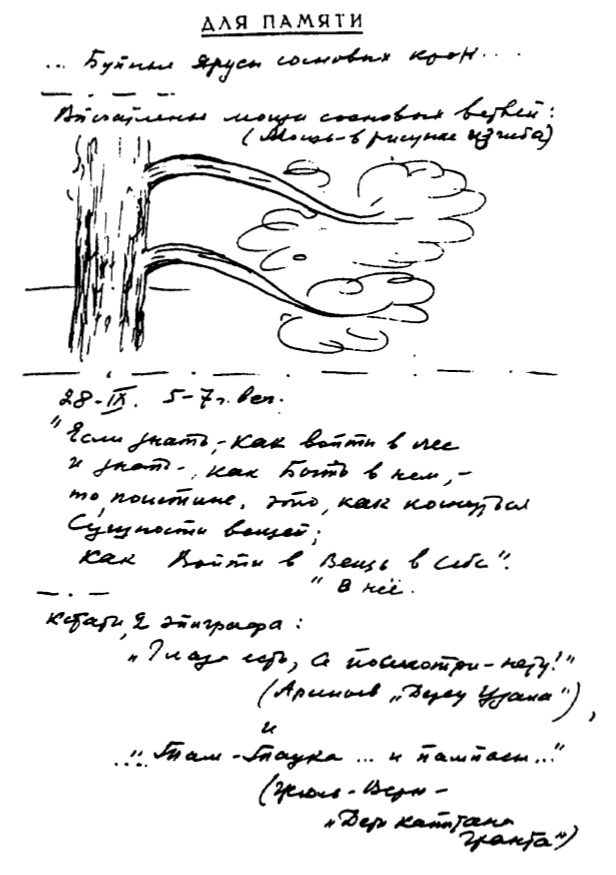 ДЛЯ ПАМЯТИ
... Буйные ярусы сосновых крон...
Впечатление мощи сосновых ветвей:
(Мощь - в рисунке изгиба)
28-IX. 5-7 ч. веч.
"Если знать, - как войти в лес
и знать -, как Быть в нем, -
то, поистине, это, как коснуться
Сущности вещей;
как Войти в Вещь в себе".
" В неё.
Кстати, 2 эпиграфа:
„Глаза есть, а посмотри - нету!"
(Арсеньев „Дерсу Узала"),
и
...„Талькав ... и пампасы..."
(Жюль-Верн -
„Дети капитана
Гранта")